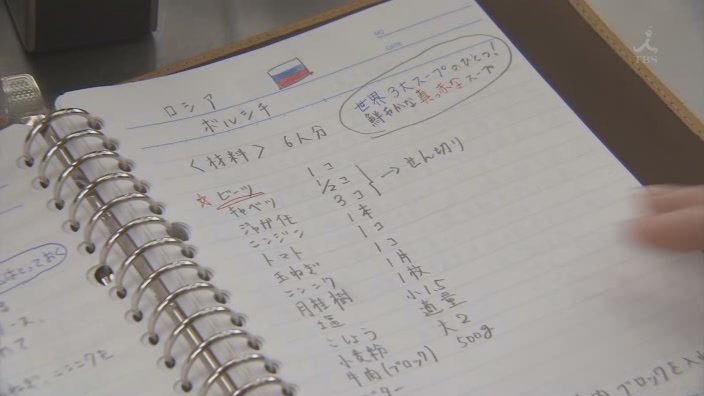 TBS
NO
DATE
ロシア
ボルシチ
世界3大スープのひとつ!
鮮やかな真っ赤なスープ
<材料> 6人分
☆ビーツ 1コ
キャベツ 1/2コ
→せん切り
ジャガ任 3コ
ニンジン 1本
トマト 1コ
玉ねぎ 1コ
ニンニク 1片
月桂樹 1枚
塩 小1.5
こしょう 適量
小麦粉 大2
牛肉(ブロック) 500g
ター
はとっておく
ブロックを入れ
ニンニクを